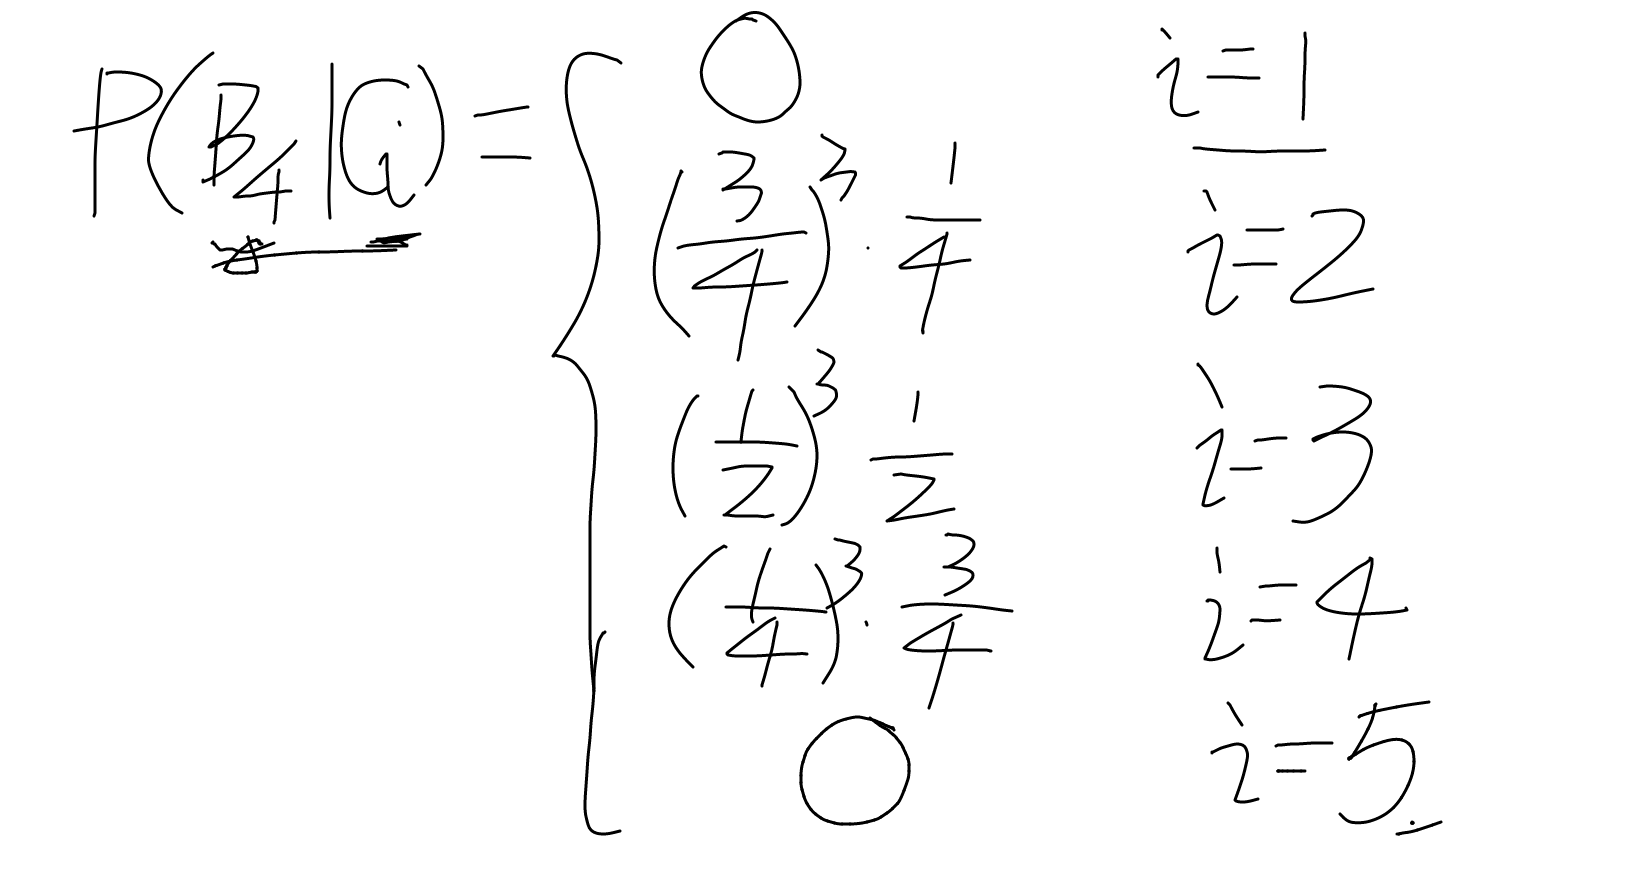 P(B₄|Cᵢ) = {
0 i=1
(3/4)³ · 1/4 i=2
(1/2)³ 1/2 i=3
(1/4)³ · 3/4 i=4
0 i=5